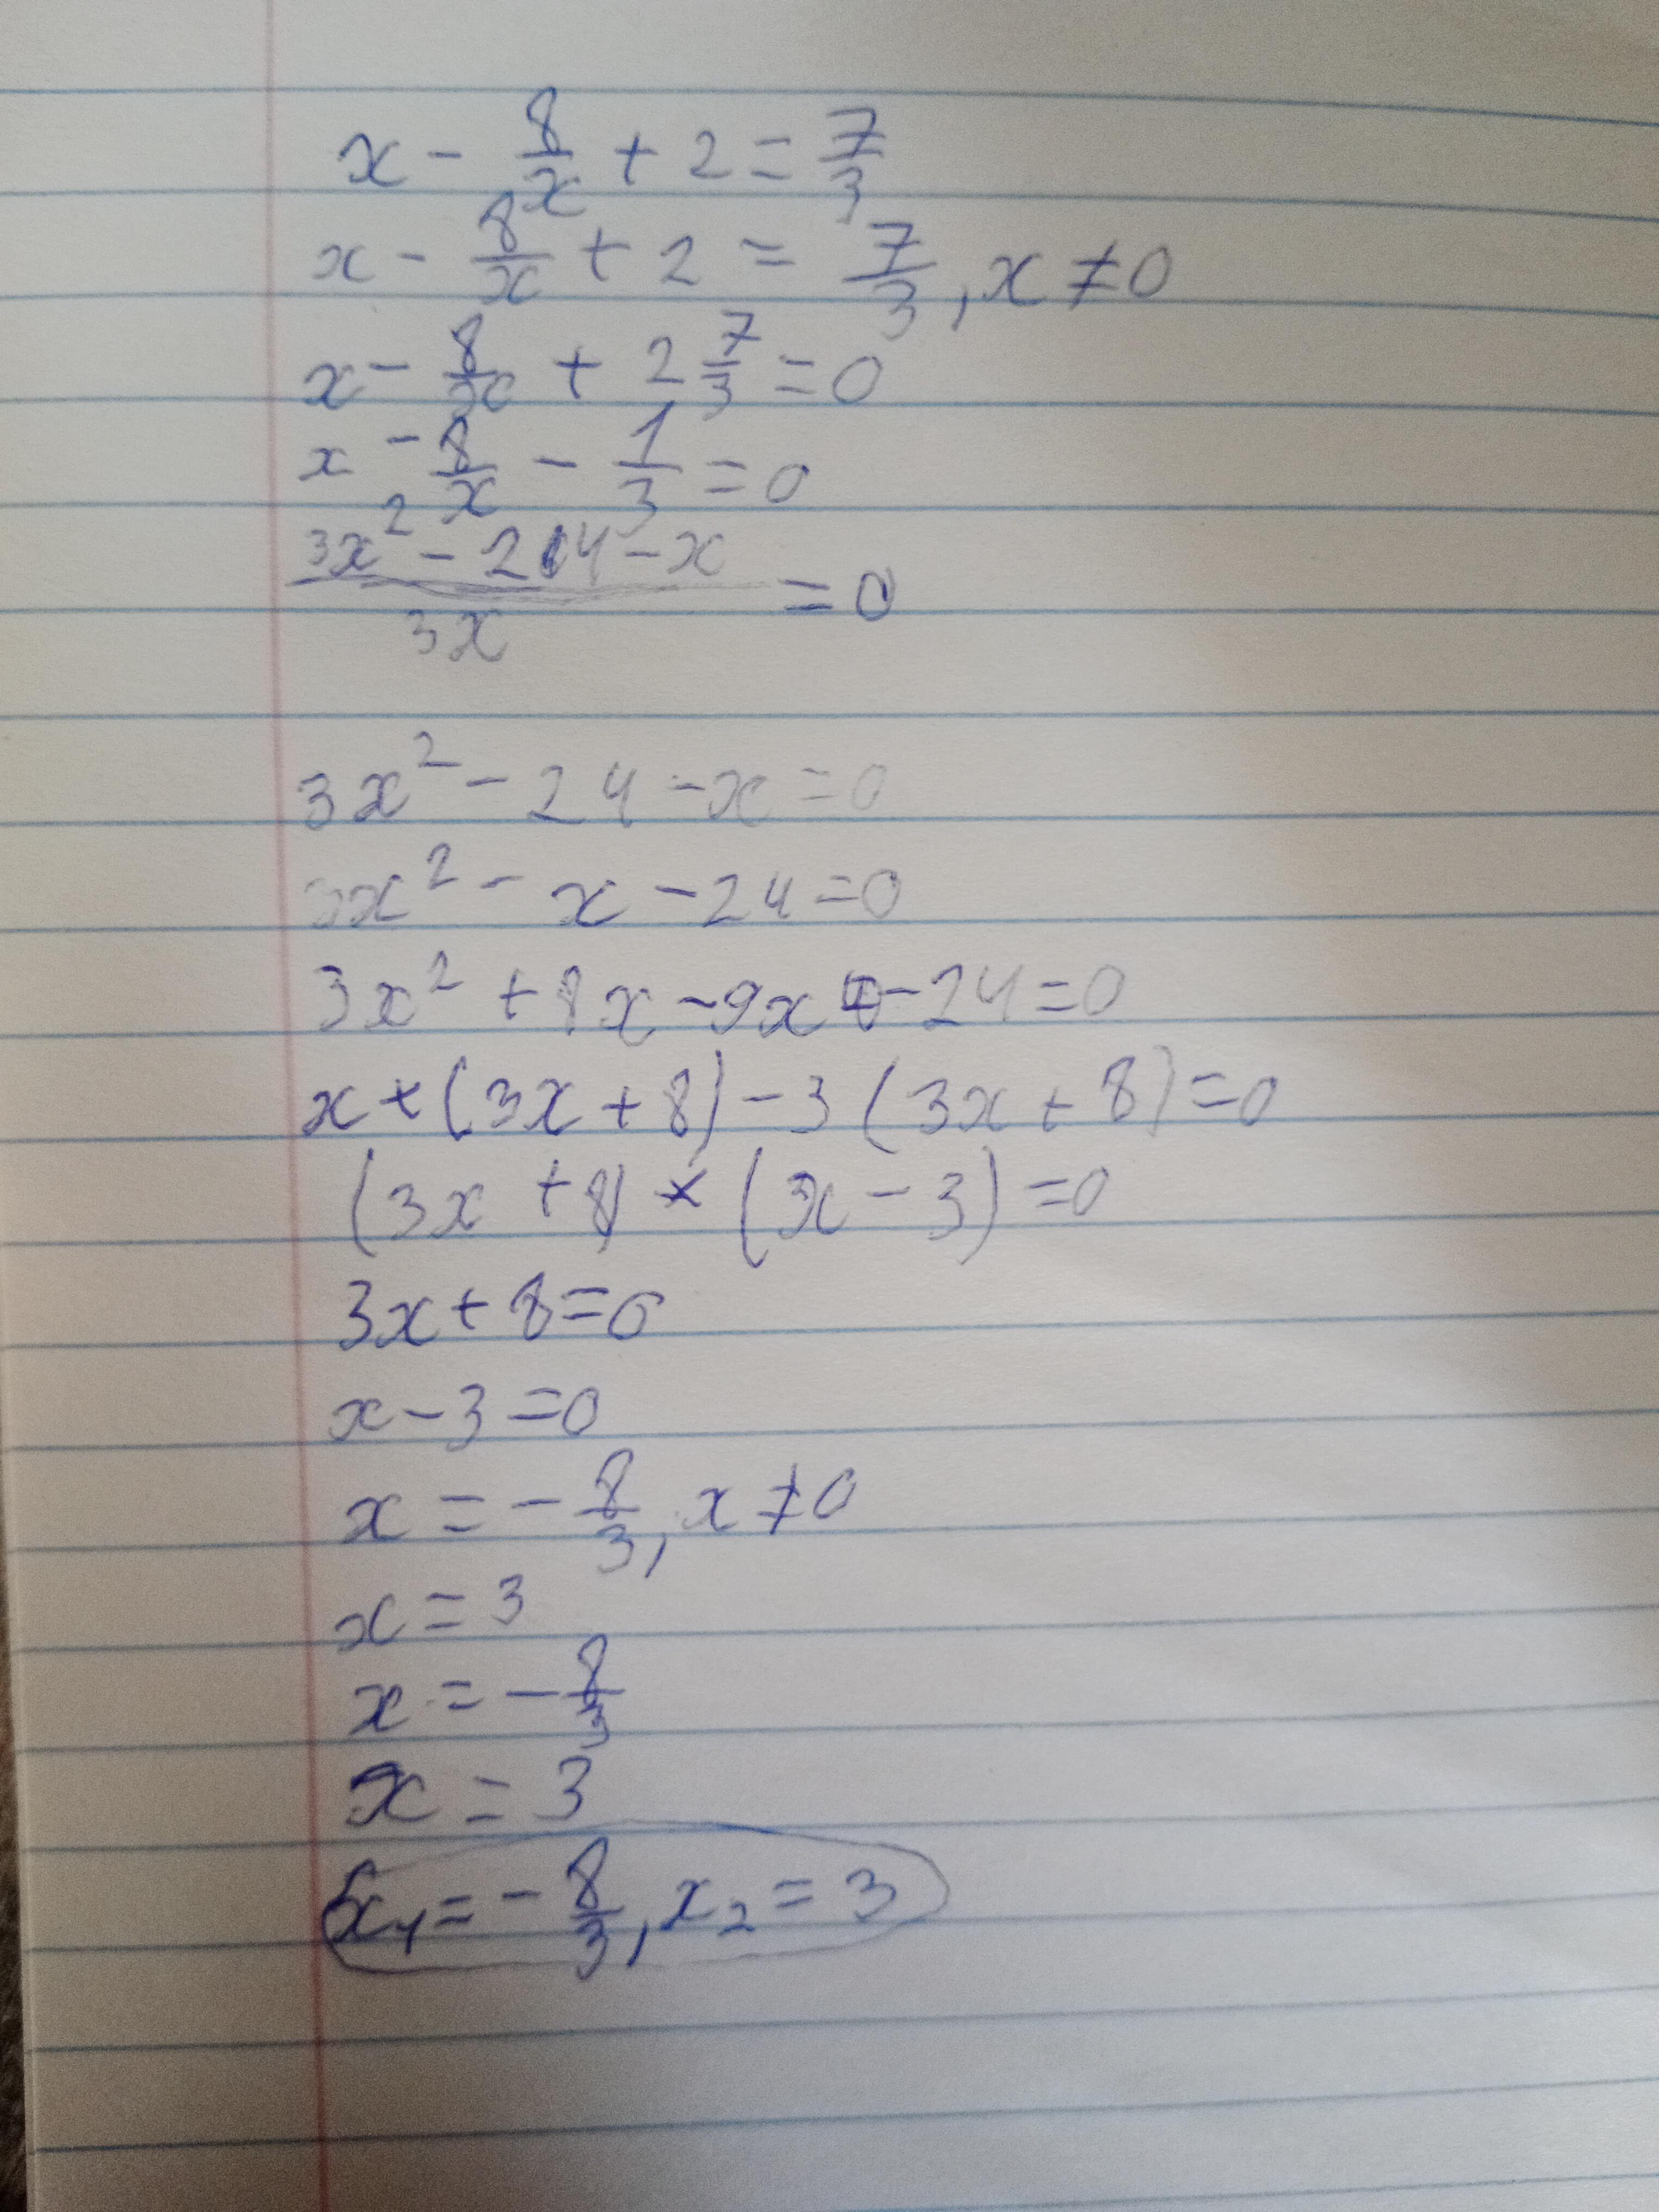 x - 8/x + 2 = 7/3
x - 8/x + 2 = 7/3, x ≠ 0
x - 8/x + 2 7/3 = 0
x - 8/x - 1/3 = 0
(3x² - 24 - x)/3x = 0
3x² - 24 - x = 0
3x² - x - 24 = 0
3x² + 8x - 9x - 24 = 0
x × (3x + 8) - 3 (3x + 8) = 0
(3x + 8) × (x - 3) = 0
3x + 8 = 0
x - 3 = 0
x = - 8/3, x ≠ 0
x = 3
x = - 8/3
x = 3
x₁ = - 8/3, x₂ = 3